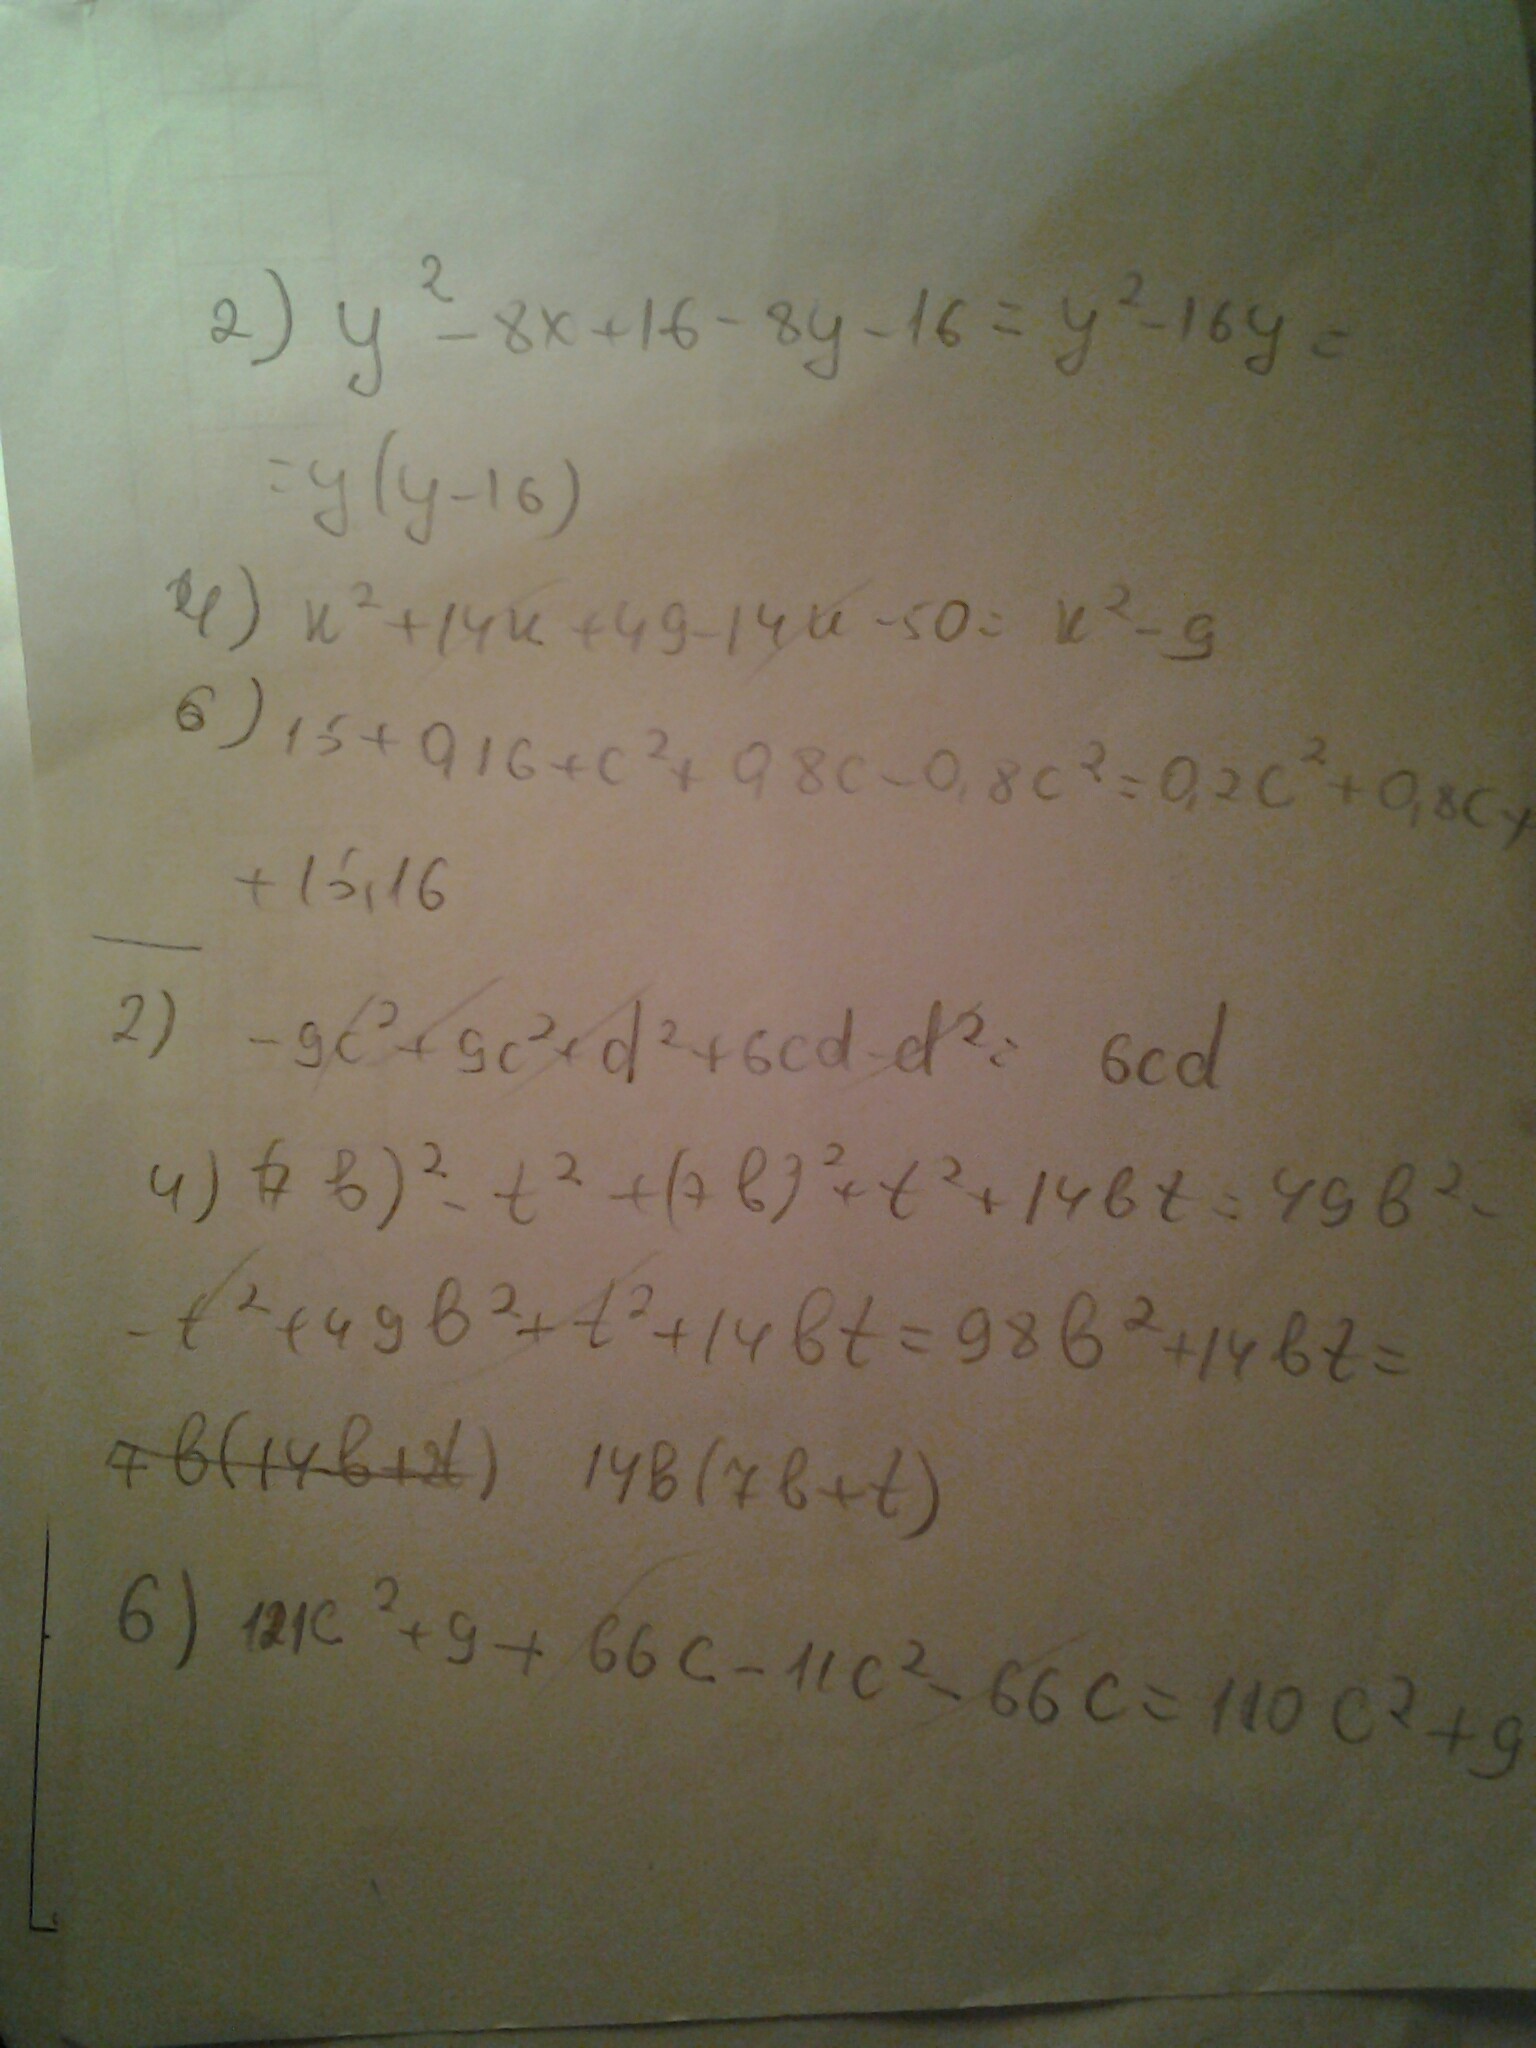 2) y² - 8x + 16 - 8y - 16 = y² - 16y =
= y(y - 16)
4) x² + 14x + 49 - 14x - 50 = x² - 9
6) 15 + 0,16 + c² + 0,8c - 0,8c² = 0,2c² + 0,8c +
+ 15,16
2) - 9c² + 9c² + d² + 6cd - d² = 6cd
4) (7в)² - t² + (7в)² + t² + 14вt = 49в² -
- t² + 49в² + t² + 14вt = 98в² + 14вt =
7в(14в + 2t) 14в(7в + t)
6) 121c² + 9 + 66c - 11c² - 66c = 110c² + 9